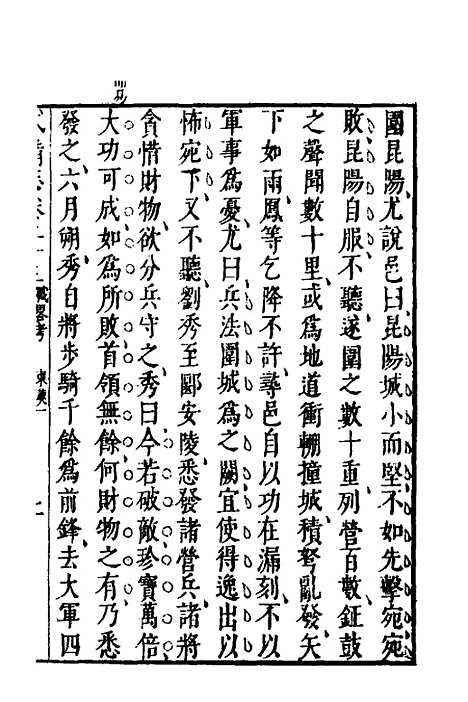 圍昆陽尤說邑曰昆陽城小而堅不如先擊宛宛
敗昆陽自服不聽遂圍之數十重列營百數鉦鼓
之聲聞數十里或為地道衝輣撞城積弩亂發矢
下如雨鳳等乞降不許尋邑自以功在漏刻不以
軍事為憂尤曰兵法圍城為之闕宜使得逸出以
怖宛下又不聽劉秀至郾安陵悉發諸營兵諸將
貪惜財物欲分兵守之秀曰今若破敵珍寶萬倍
大功可成如為所敗首領無餘何財物之有乃悉
發之六月朔秀自將步騎千餘為前鋒去大軍四
戰畧考 東漢一